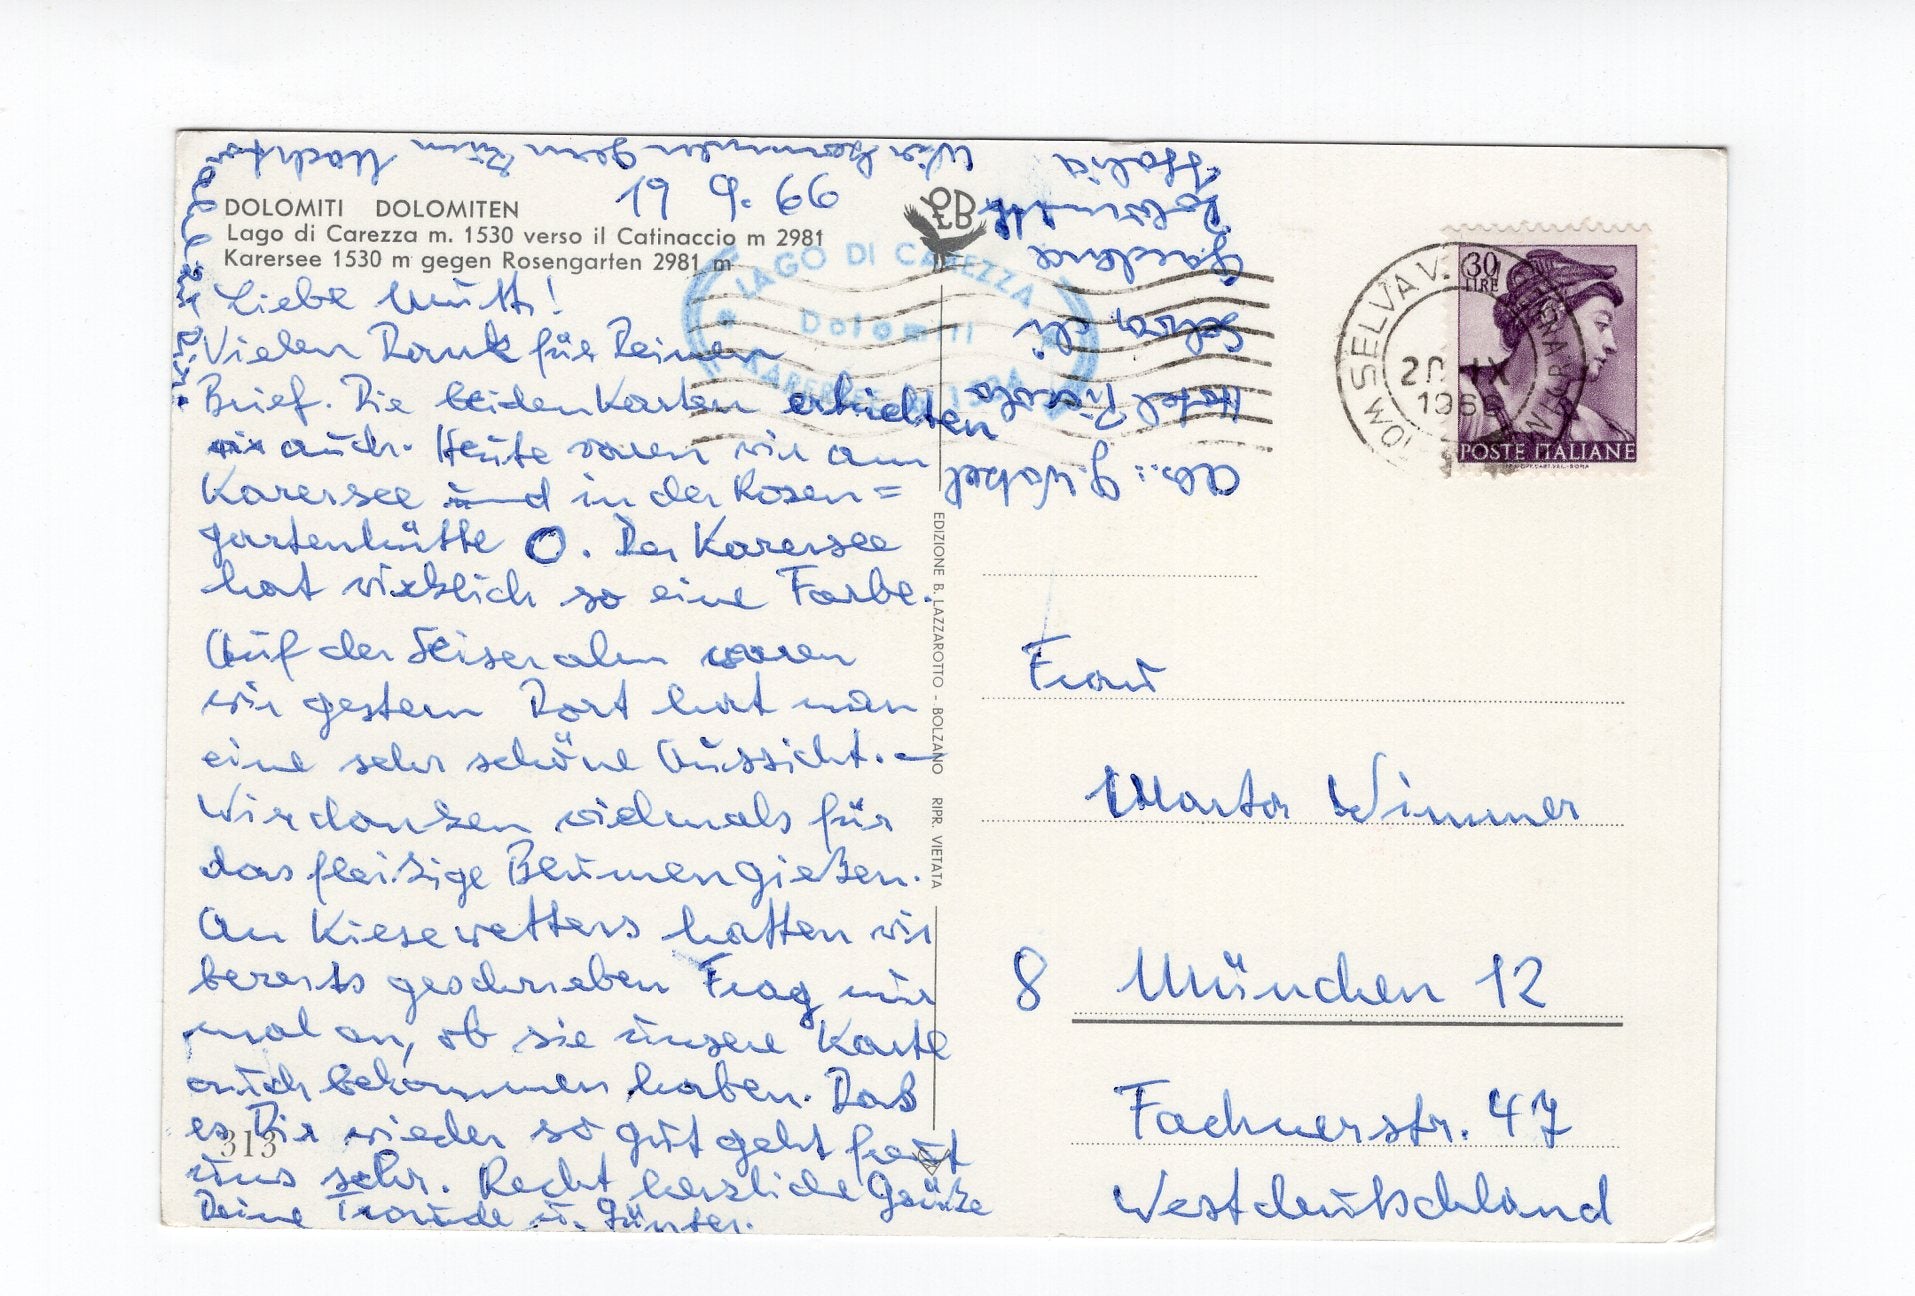 DOLOMITI DOLOMITEN
Lago di Carezza m. 1530 verso il Catinaccio m 2981
Karersee 1530 m gegen Rosengarten 2981 m
19 9. 66
Liebe Mutti!
Vielen Dank für Deinen
Brief. Die beiden Karten erhielten
wir auch. Heute waren wir am
Karersee und in der Rosen=
gartenhütte O. Der Karersee
hat wirklich so eine Farbe.
Auf der Seiser alm waren
wir gestern Dort hat man
eine sehr schöne Aussicht. –
Wir danken vielmals für
das fleißige Blumengießen.
An Kiesewetters hatten wir
bereits geschrieben Frag nur
mal an, ob sie unsere Karte
auch bekommen haben. Daß
es Dir wieder so gut geht freut
uns sehr. Recht herzliche Grüße
Deine Traude u. Günter.
313
Wir kommen gern zum
zu Dir.
Abs.: G. Wakel
Hotel Piccolo
Selva di
Gardena
Dolomiti
Italia
ŒB
LAGO DI CAREZZA
Dolomiti
KARERSEE
EDIZIONE B. LAZZAROTTO - BOLZANO RIPR. VIETATA
SELVA V.
20 IX
1966
30
LIRE
POSTE ITALIANE
Frau
Marta Wimmer
8 München 12
Fachnerstr. 47
Westdeutschland